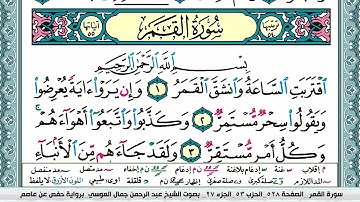 سُورَةُ القَمَرِ
بِسْمِ ٱللَّهِ ٱلرَّحْمَٰنِ ٱلرَّحِيمِ
ٱقْتَرَبَتِ ٱلسَّاعَةُ وَٱنشَقَّ ٱلْقَمَرُ ١ وَإِن يَرَوْا۟ ءَايَةً يُعْرِضُوا۟
وَيَقُولُوا۟ سِحْرٌ مُّسْتَمِرٌّ ٢ وَكَذَّبُوا۟ وَٱتَّبَعُوٓا۟ أَهْوَآءَهُمْ ۚ
وَكُلُّ أَمْرٍ مُّسْتَقِرٌّ ٣ وَلَقَدْ جَآءَهُم مِّنَ ٱلْأَنۢبَآءِ
سورة القمر الصفحة ٥٢٨ الحزب ٥٣ الجزء ٢٧ بصوت الشيخ عبد الرحمن جمال العوسي برواية حفص عن عاصم